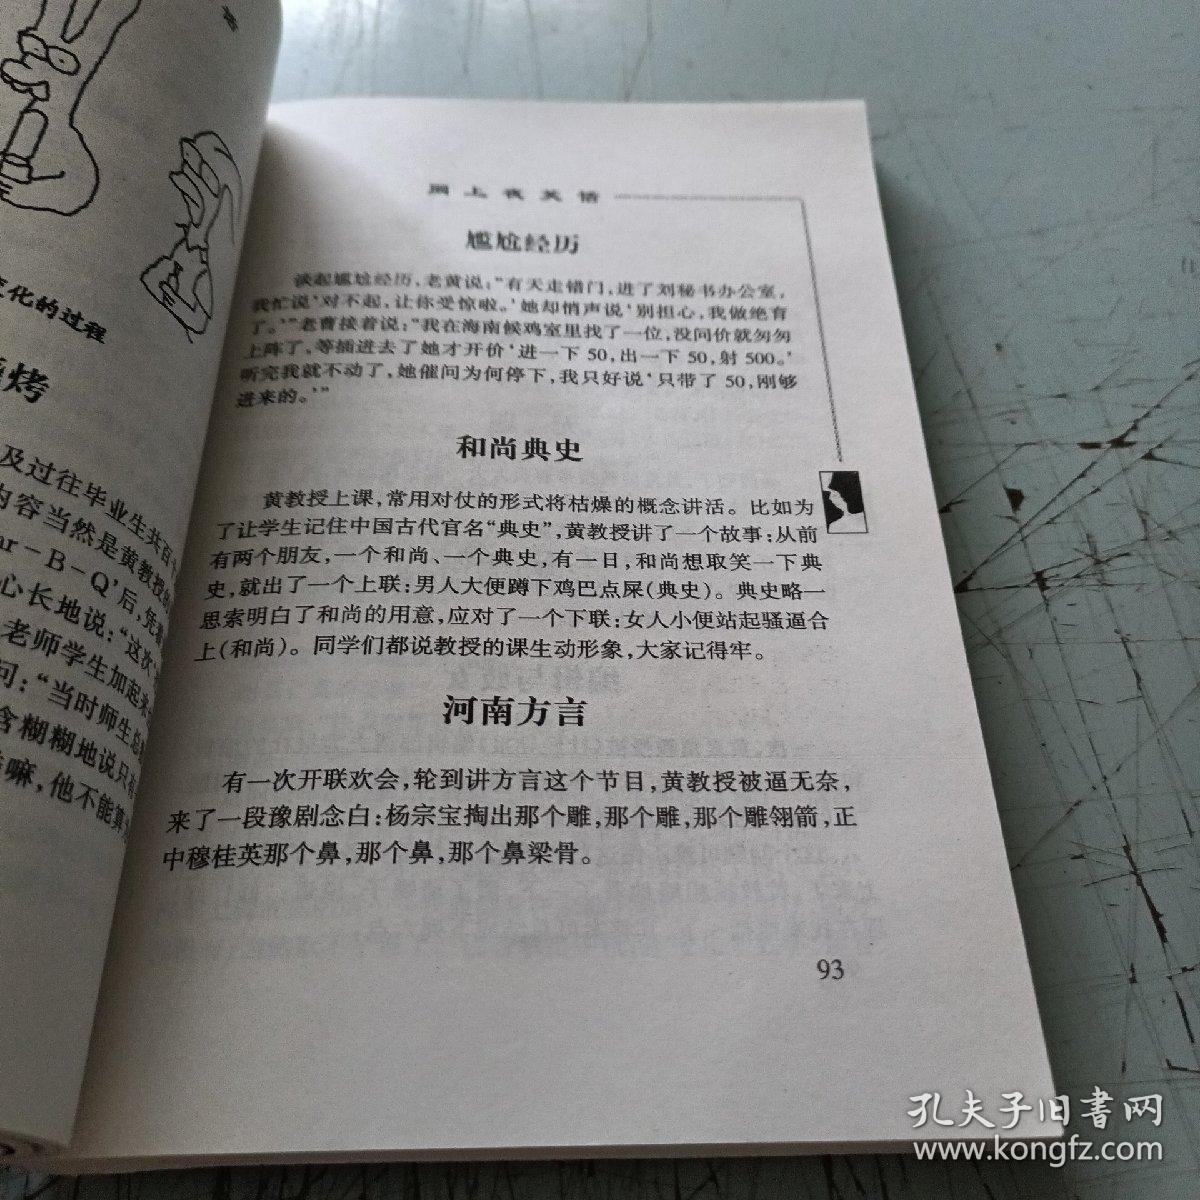 变化的过程
烤
及过往毕业生共百十
内容当然是黄教授的
ar－B－Q'后,凭着
心长地说:“这次
老师学生加起来
问:“当时师生总
含糊糊地说只有
嘛,他不能算
网上夜笑话
尴尬经历
谈起尴尬经历,老黄说:“有天走错门,进了刘秘书办公室,
我忙说‘对不起,让你受惊啦。’她却悄声说‘别担心,我做绝育
了。’”老曹接着说:“我在海南候鸡室里找了一位,没问价就匆匆
上阵了,等插进去了她才开价‘进一下50,出一下50,射500。’
听完我就不动了,她催问为何停下,我只好说‘只带了50,刚够
进来的。’”
和尚典史
黄教授上课,常用对仗的形式将枯燥的概念讲活。比如为
了让学生记住中国古代官名“典史”,黄教授讲了一个故事:从前
有两个朋友,一个和尚、一个典史,有一日,和尚想取笑一下典
史,就出了一个上联:男人大便蹲下鸡巴点屎(典史)。典史略一
思索明白了和尚的用意,应对了一个下联:女人小便站起骚逼合
上(和尚)。同学们都说教授的课生动形象,大家记得牢。
河南方言
有一次开联欢会,轮到讲方言这个节目,黄教授被逼无奈,
来了一段豫剧念白:杨宗宝掏出那个雕,那个雕,那个雕翎箭,正
中穆桂英那个鼻,那个鼻,那个鼻梁骨。
93
孔夫子旧书网
www.kongfz.com